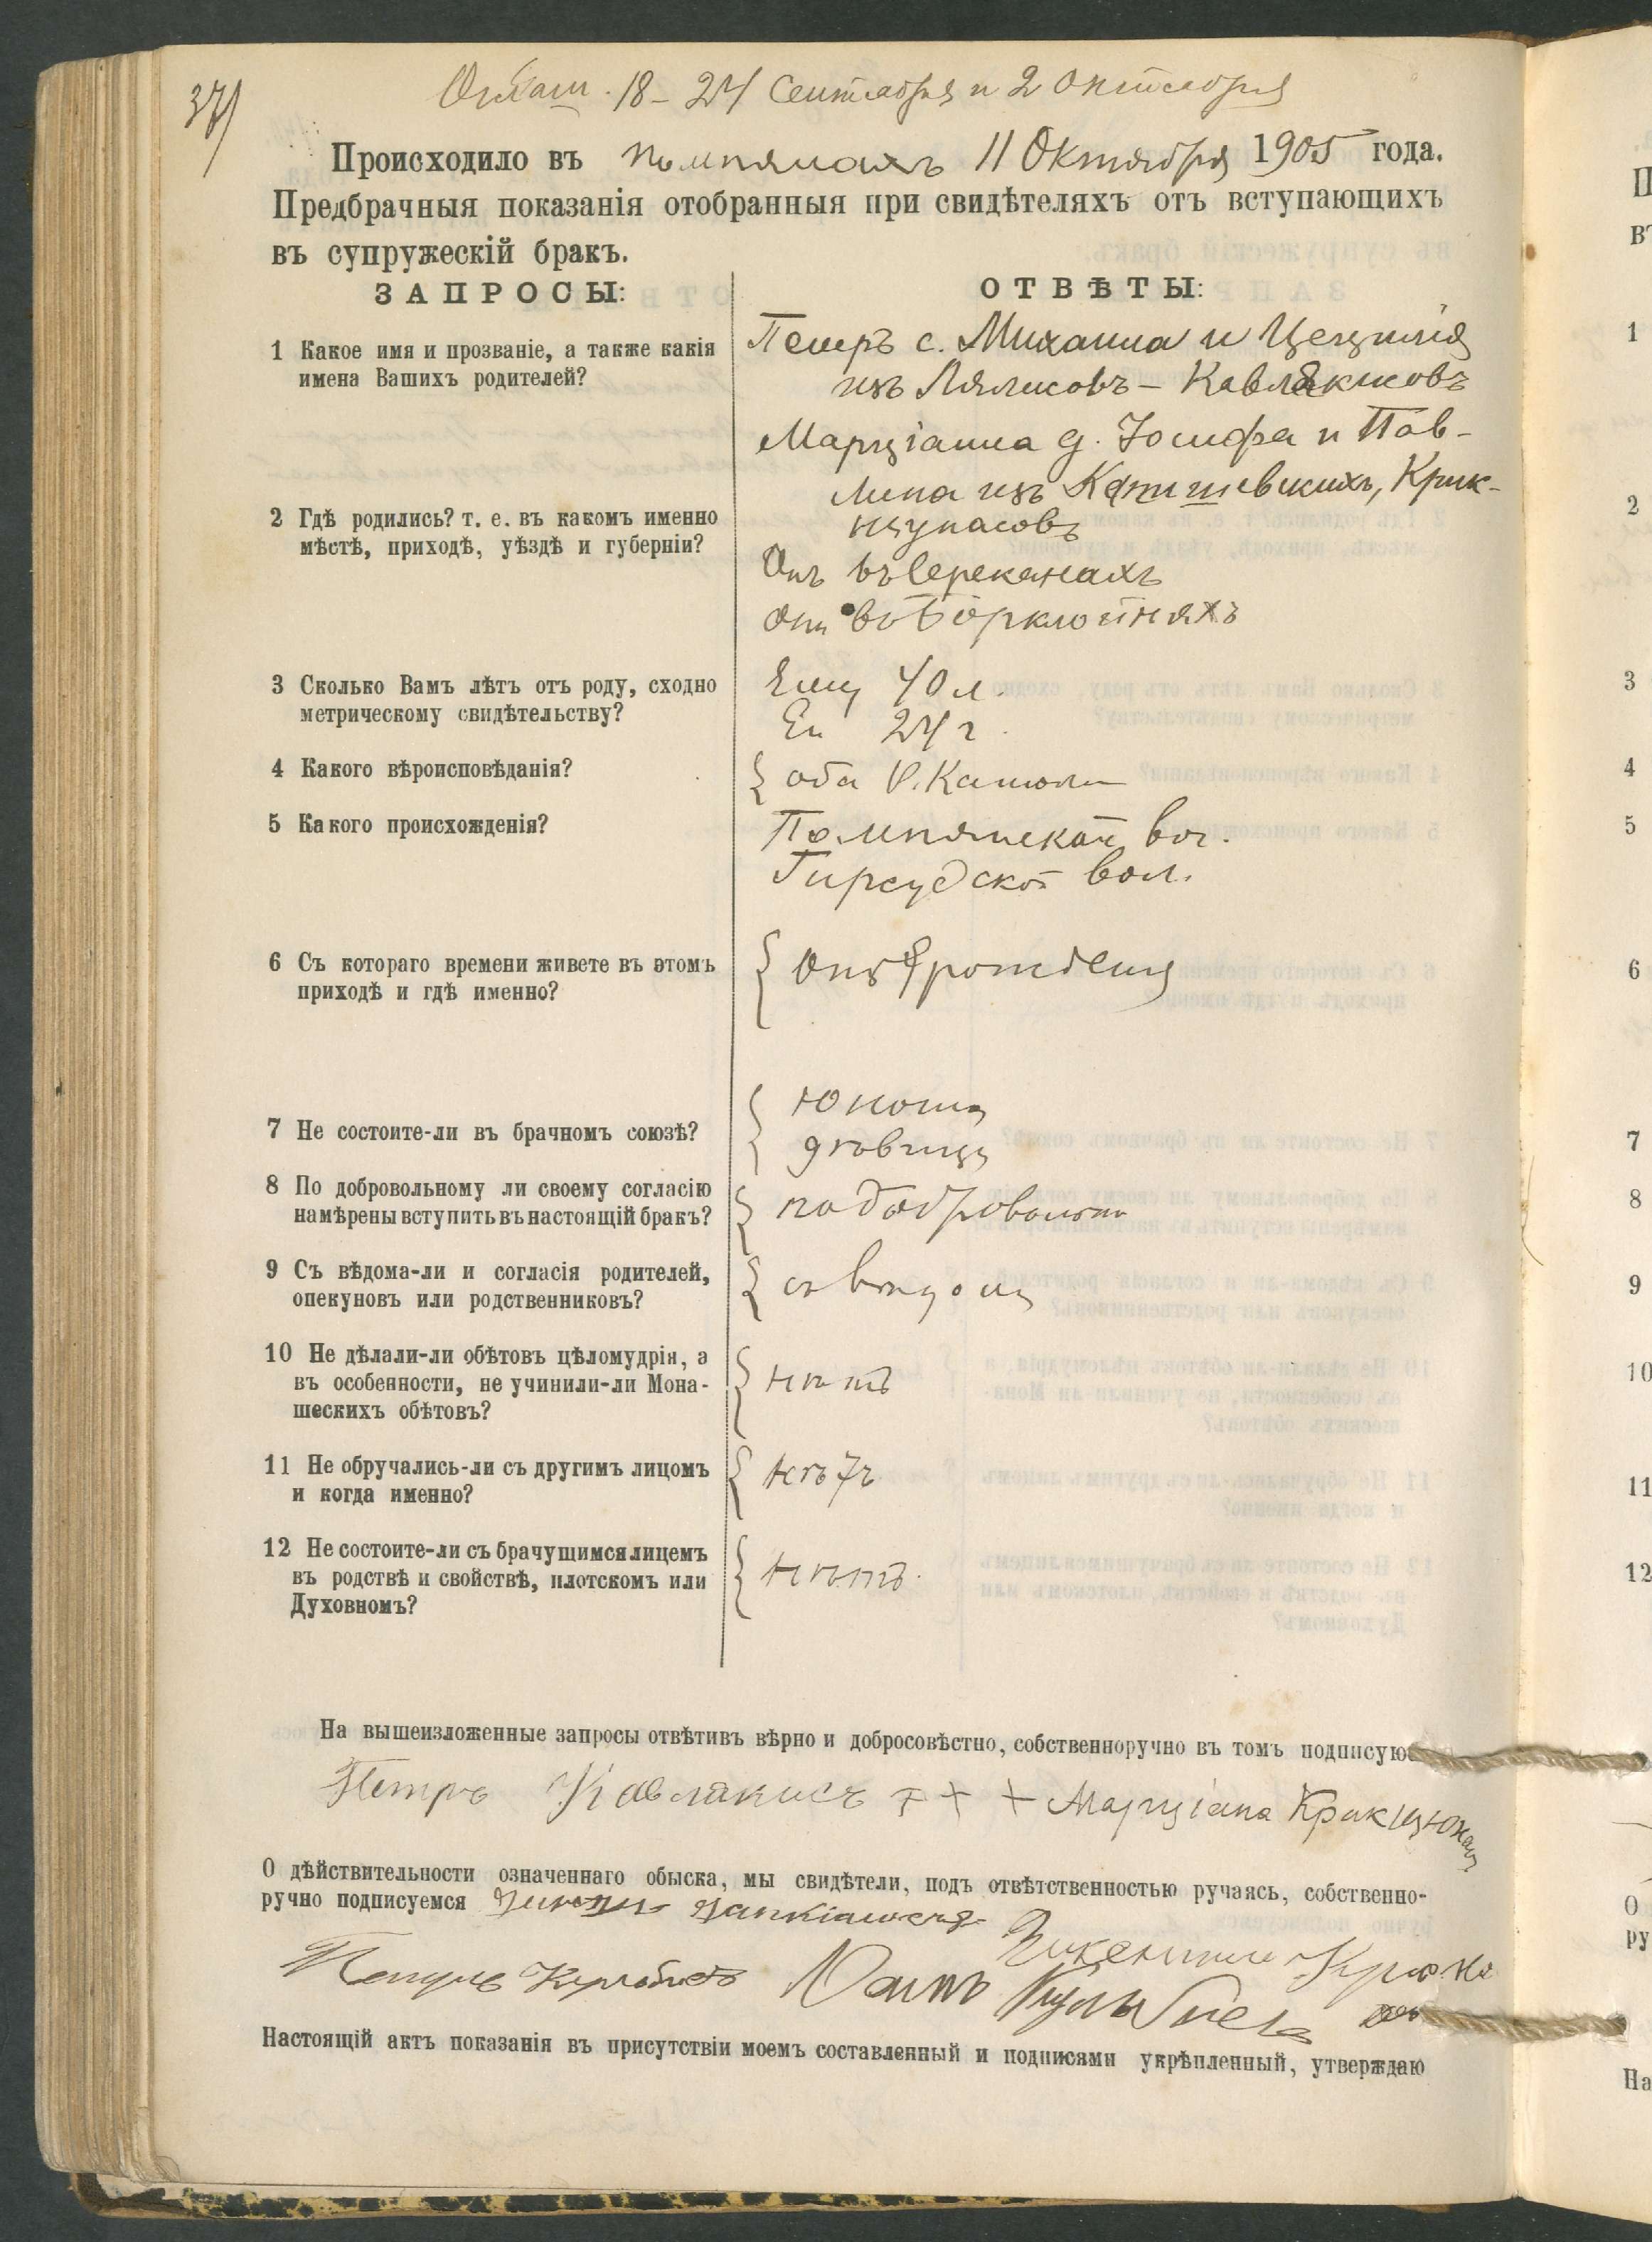 37
Оглаш. 18 - 24 Сентября и 2 Октября
Происходило въ Помпянахъ 11 Октября 1905 года.
Предбрачныя показанія отобранныя при свидѣтеляхъ отъ вступающихъ
въ супружескій бракъ.
ЗАПРОСЫ:
ОТВѢТЫ:
1 Какое имя и прозваніе, а также какія
имена Вашихъ родителей?
Петръ с. Михаила и Цециліи
изъ
Марціанна д. Іосифа и Пав-
лина изъ Крик-
Онъ въ
она въ
2 Гдѣ родились? т. е. въ какомъ именно
мѣстѣ, приходѣ, уѣздѣ и губерніи?
3 Сколько Вамъ лѣтъ отъ роду, сходно
метрическому свидѣтельству?
Ему 40 л.
Ей 24 г.
4 Какого вѣроисповѣданія?
оба Р. Катол
5 Какого происхожденія?
Помпянской вол.
вол.
6 Съ котораго времени живете въ этомъ
приходѣ и гдѣ именно?
Отъ рожденія
7 Не состоите-ли въ брачномъ союзѣ?
Юноша
дѣвица
8 По добровольному ли своему согласію
намѣрены вступить въ настоящій бракъ?
по добровольно
9 Съ вѣдома-ли и согласія родителей,
опекуновъ или родственниковъ?
съ вѣдома
10 Не дѣлали-ли обѣтовъ цѣломудрія, а
въ особенности, не учинили-ли Мона-
шескихъ обѣтовъ?
нѣтъ
11 Не обручались-ли съ другимъ лицомъ
и когда именно?
нѣтъ
12 Не состоите-ли съ брачущимся лицемъ
въ родствѣ и свойствѣ, плотскомъ или
Духовномъ?
нѣтъ.
На вышеизложенные запросы отвѣтивъ вѣрно и добросовѣстно, собственноручно въ томъ подписую
Петръ Кавлакисъ + + + Марціана
О дѣйствительности означеннаго обыска, мы свидѣтели, подъ отвѣтственностью ручаясь, собственно-
ручно подписуемся
Настоящій актъ показанія въ присутствіи моемъ составленный и подписями укрѣпленный, утверждаю